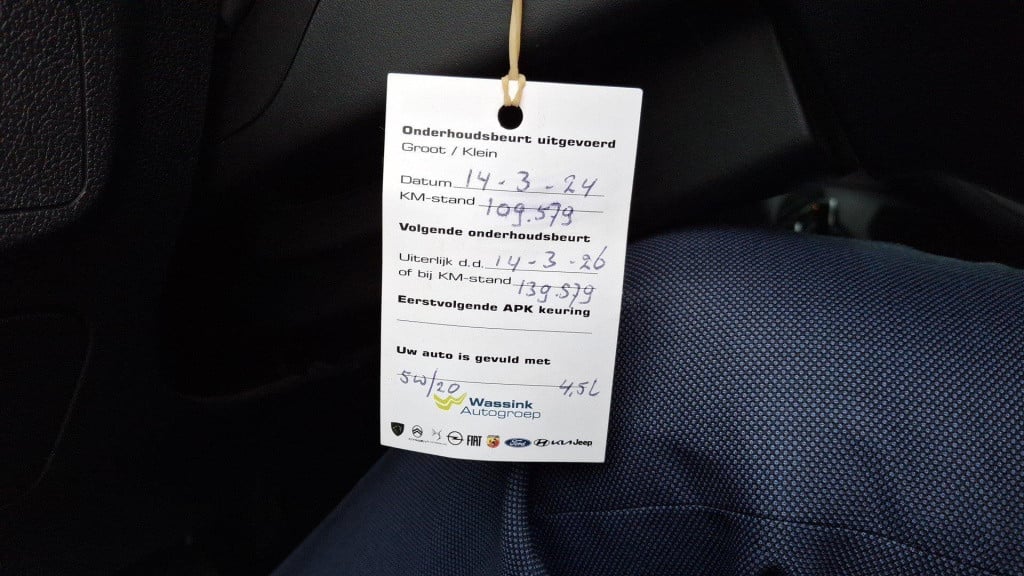 Onderhoudsbeurt uitgevoerd
Groot / Klein
Datum 14-3-24
KM-stand 109.579
Volgende onderhoudsbeurt
Uiterlijk d.d. 14-3-26
of bij KM-stand 139.579
Eerstvolgende APK keuring
Uw auto is gevuld met
5W/20 4,5L
Wassink
Autogroep
FIAT Ford KIA Jeep